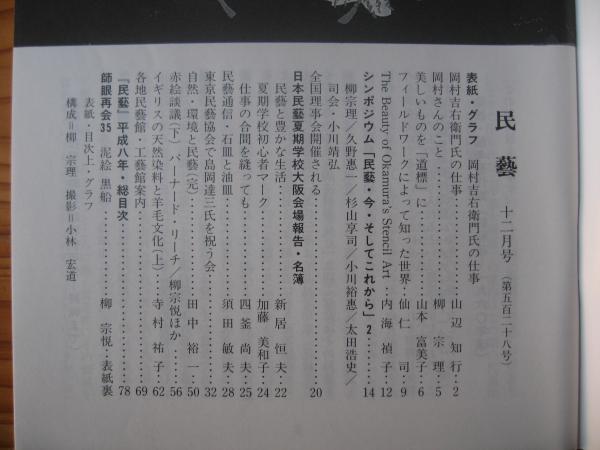 民藝 十二月号 (第五百二十八号)
表紙・グラフ 岡村吉右衛門氏の仕事
岡村吉右衛門氏の仕事 山辺知行・2
岡村さんのこと 柳宗理・5
美しいものを「道標」に 山本富美子・6
フィールドワークによって知った世界・仙仁司・9
The Beauty of Okamura's Stencil Art・内海禎子・12
シンポジウム「民藝・今・そしてこれから」2 14
柳宗理/久野恵一/杉山享司/小川裕惠/太田浩史/
司会・小川靖弘
全国理事会開催される 20
日本民藝夏期学校大阪会場報告・名簿
民藝と豊かな生活 新居恒夫・22
夏期学校初心者マーク 加藤美和子・24
仕事の合間を縫っても 四釜尚夫・25
民藝通信・石皿と油皿 須田敏夫・28
東京民藝協会で島岡達三氏を祝う会 32
自然・環境と民藝(元) 田中裕一・50
赤絵談議(下) バーナード・リーチ/柳宗悦ほか 56
イギリスの天然染料と羊毛文化(上) 寺村祐子・62
各地民藝館・工藝館案内 69
『民藝』平成八年・総目次 78
師眼再会35 泥絵 黒船 柳宗悦・表紙裏
表紙・目次上・グラフ
構成=柳宗理 撮影=小林宏道